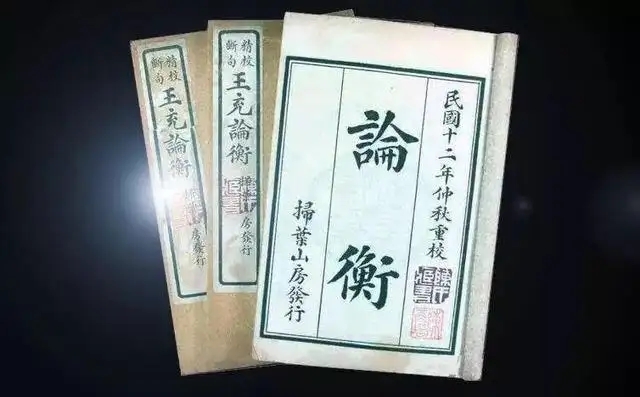 精校
断句
王充論衡
房發行
精校
断句
王充論衡
房發行
民國十二年仲秋重校
論衡
掃葉山房發行